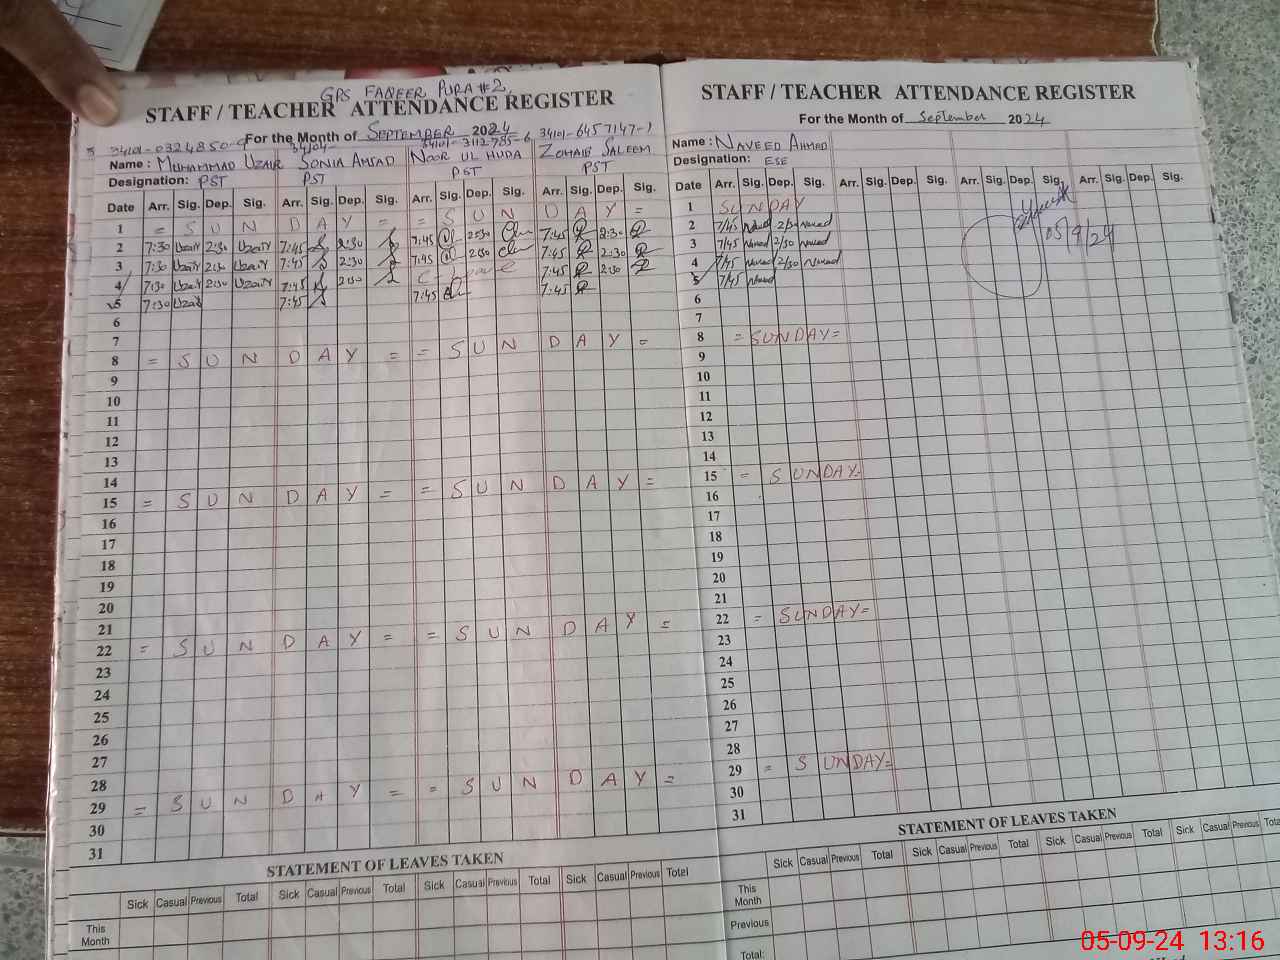 GPS FAQEER PURA #2
STAFF / TEACHER ATTENDANCE REGISTER
For the Month of September 2024
34101-0324850-9 34101- 34101-3112785-6 34101-6457147-1
Name : MUHAMMAD UZAIR SONIA AMJAD NOOR UL HUDA ZOHAIB SALEEM
Designation: PST PST PST PST
Date Arr. Sig. Dep. Sig. Arr. Sig. Dep. Sig. Arr. Sig. Dep. Sig. Arr. Sig. Dep. Sig.
1 = S U N D A Y = = S U N D A Y =
2 7:30 Uzair 2:30 Uzair 7:45 2:30 7:45 2:30 7:45 2:30
3 7:30 Uzair 2:30 Uzair 7:45 2:30 7:45 2:30 7:45 2:30
4 7:30 Uzair 2:30 Uzair 7:45 2:30 7:45 2:30
5 7:30 Uzair 7:45 7:45 7:45
6
7
8 = S U N D A Y = = S U N D A Y =
9
10
11
12
13
14
15 = S U N D A Y = = S U N D A Y =
16
17
18
19
20
21
22 = S U N D A Y = = S U N D A Y =
23
24
25
26
27
28
29 = S U N D A Y = = S U N D A Y =
30
31
STATEMENT OF LEAVES TAKEN
Sick Casual Previous Total Sick Casual Previous Total Sick Casual Previous Total
This
Month
STAFF / TEACHER ATTENDANCE REGISTER
For the Month of September 2024
Name : NAVEED AHMAD
Designation: ESE
Date Arr. Sig. Dep. Sig. Arr. Sig. Dep. Sig. Arr. Sig. Dep. Sig. Arr. Sig. Dep. Sig.
1 SUNDAY
2 7/45 Naveed 2/30 Naveed
3 7/45 Naveed 2/30 Naveed
05/9/24
4 7/45 Naveed 2/30 Naveed
5 7/45 Naveed
6
7
8 = SUNDAY =
9
10
11
12
13
14
15 = SUNDAY =
16
17
18
19
20
21
22 = SUNDAY =
23
24
25
26
27
28
29 = SUNDAY =
30
31
STATEMENT OF LEAVES TAKEN
Sick Casual Previous Total Sick Casual Previous Total Sick Casual Previous Total Sick Casual Previous Total
This
Month
Previous
Total:
05-09-24 13:16